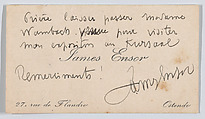 Prière laisser passer madame
Wambach pour visiter
mon exposition au Kursaal
James Ensor
Remerciments!
James Ensor
27, rue de Flandre Ostende